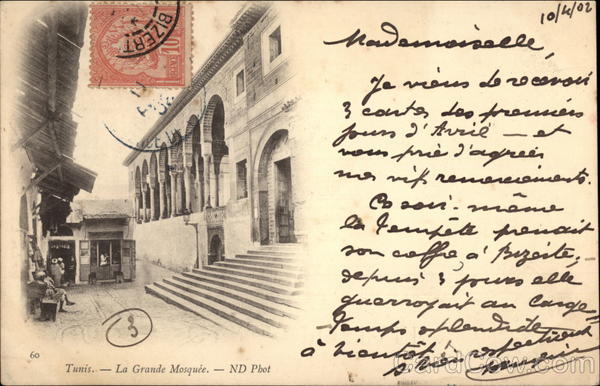 10/4/02
BIZERT
10
Mademoiselle,
Je viens de recevoir
3 cartes des premiers
jours d'Avril — et
vous prie d'agréer
mes vifs remerciements.
Ce soir même
la Tempête prenait
son coffre, à Bizerte.
depuis 3 jours elle
guerroyait au large
Temps splendide
à bientôt
3
60
Tunis. — La Grande Mosquée. — ND Phot
CardCow.com